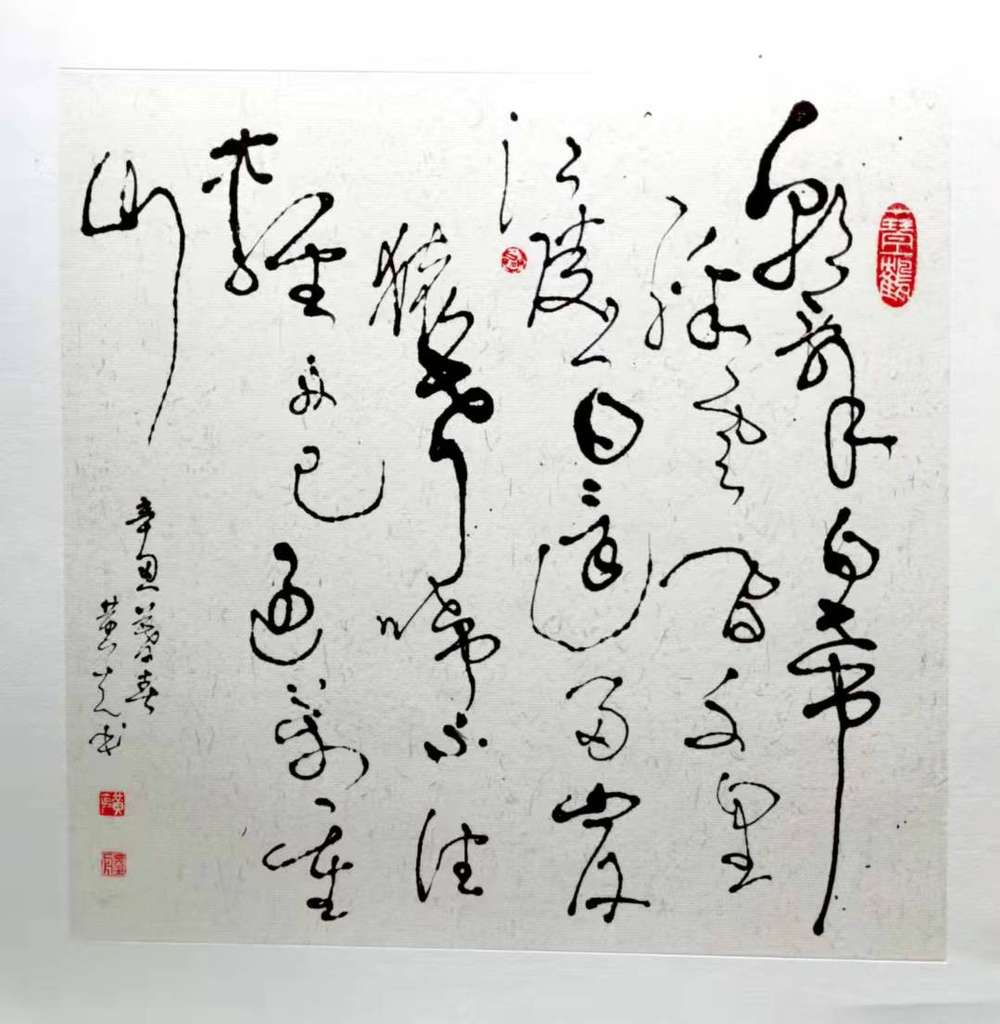 朝辭白帝
彩雲間千里
江陵一日還兩岸
猿聲啼不住
輕舟已過萬重
山
辛丑暮春
黄光书
琴鶴